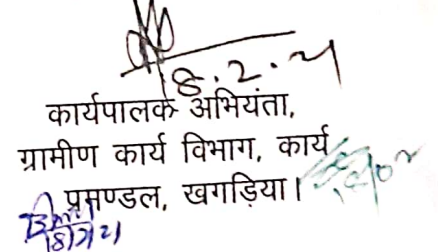 18.2.21
कार्यपालक अभियंता,
ग्रामीण कार्य विभाग, कार्य
प्रमण्डल, खगड़िया।